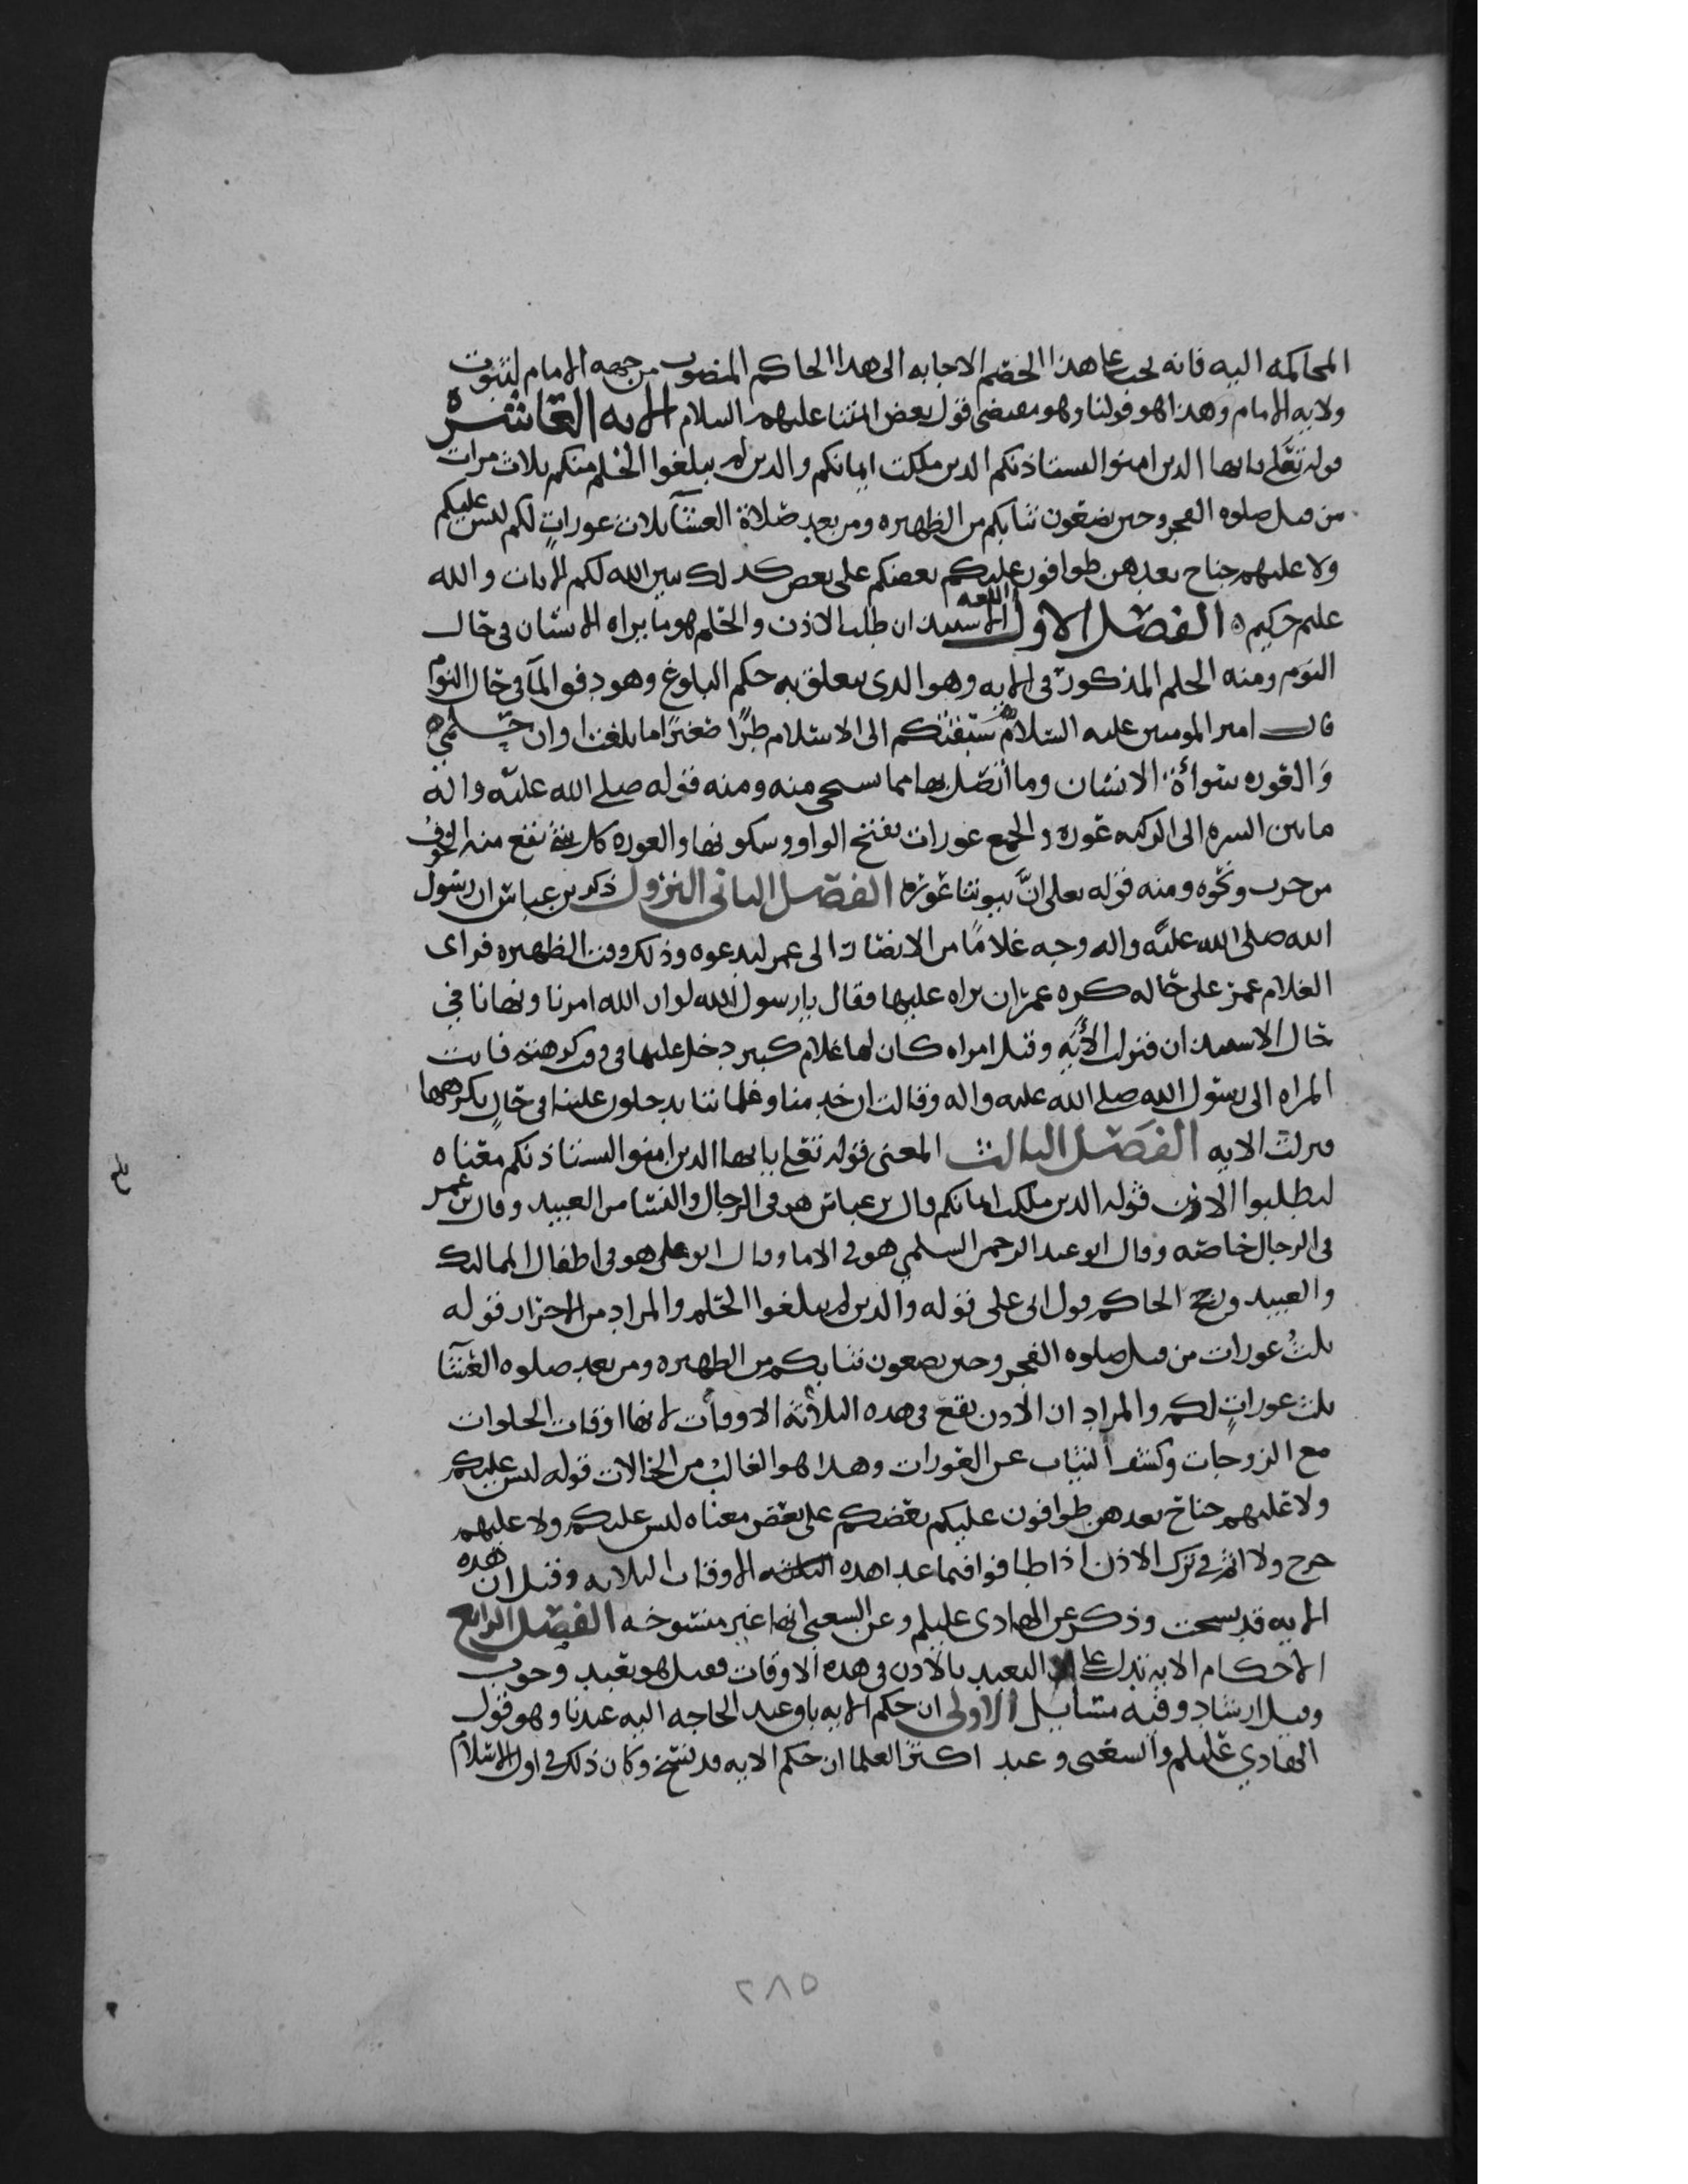 المحاكمه اليه فانه يجب على هذا الخصم الاجابه الى هذا الحاكم المنصوب من جهه الامام لثبوت
ولايه الامام وهذا هو قولنا وهو مقتضى قول بعض ائمتنا عليهم السلام الايه العاشره
قوله تعلى يايها الدين امنوا ليستاذنكم الدين ملكت ايمانكم والدين لم يبلغوا الحلم منكم ثلاث مرات
من قبل صلوه الفجر وحين تضعون ثيابكم من الظهيره ومن بعد صلاة العشآ ثلاث عورات لكم ليس عليكم
ولا عليهم جناح بعدهن طوافون عليكم بعضكم على بعض كدلك يبين الله لكم الايات والله
عليم حكيم ه الفصل الاول اللغه الاستيذان طلب الاذن والحلم هو ما يراه الانسان في حال
النوم ومنه الحلم المذكور في الايه وهو الدى يتعلق به حكم البلوغ وهو دفق المآ في حال النوم
قال امير المومنين عليه السلام سبقتكم الى الاسلام طرًا صغيرًا ما بلغت اوان حلمي ه
والعوره سوأة الانسان وما اتصل بها مما يستحى منه ومنه قوله صلى الله عليه واله
ما بين السره الى الركبه عوره والجمع عورات بفتح الواو وسكونها والعوره كل شيء يقع منه الخوف
من حرب ونحوه ومنه قوله تعلى انَّ بيوتنا عوره الفصل الثانى النزول ذكر بن عباس ان رسول
الله صلى الله عليه واله وجه غلامًا من الانصار الى عمر ليدعوه وذلك وقت الظهيره فراى
الغلام عمر على حاله كره عمر ان يراه عليها وقال يارسول الله لو ان الله امرنا ونهانا في
حال الاستيذان فنزلت الأيه وقيل امراه كان لها غلام كبير دخل عليها في وقت كرهته فاتت
المراه الى رسول الله صلى الله عليه واله وقالت ان خدمنا وغلماننا يدخلون علينا في حالٍ نكرهها
فنزلت الايه الفصل الثالث المعنى قوله تعلى يايها الدين امنوا ليستاذنكم معناه
ليطلبوا الاذن قوله الدين ملكت ايمانكم قال بن عباس هو في الرجال والنسا من العبيد وقال بن عمر
فى الرجال خاصه وقال ابو عبد الرحمن السلمي هو في الاما وقال ابو على هو في اطفال المماليك
والعبيد ورجح الحاكم قول ابى على قوله والدين لم يبلغوا الحلم والمراد من الاحرار قوله
ثلثُ عورات من قبل صلوه الفجر وحين تضعون ثيابكم من الظهيره ومن بعد صلوه العشآ
ثلث عوراتٍ لكم والمراد ان الاذن يقع في هده الثلاثه الاوقات لانها اوقات الخلوات
مع الزوجات وكشف الثياب عن العورات وهدا هو الغالب من الحالات قوله ليس عليكم
ولا عليهم جناح بعدهن طوافون عليكم بعضكم على بعض معناه ليس عليكم ولا عليهم
حرج ولا اثم في ترك الاذن اذا طافوا فيما عدا هده الاوقات الثلاثه وقيل ان هده
الايه قد نسخت وذكر عن الهادى عليلم وعن الشعبي انها غير منسوخه الفصل الرابع
الاحكام الايه تدل على التعبد بالاذن في هده الاوقات فقيل هو تعبد وجوب
وقيل ارشاد وفيه مسايل الاولى ان حكم الايه باق عند الحاجه اليه عندنا وهو قول
الهادي عليلم والشعبى وعند اكثر العلما ان حكم الايه قد نسخ وكان ذلك في اول الاسلام
٢٨٥